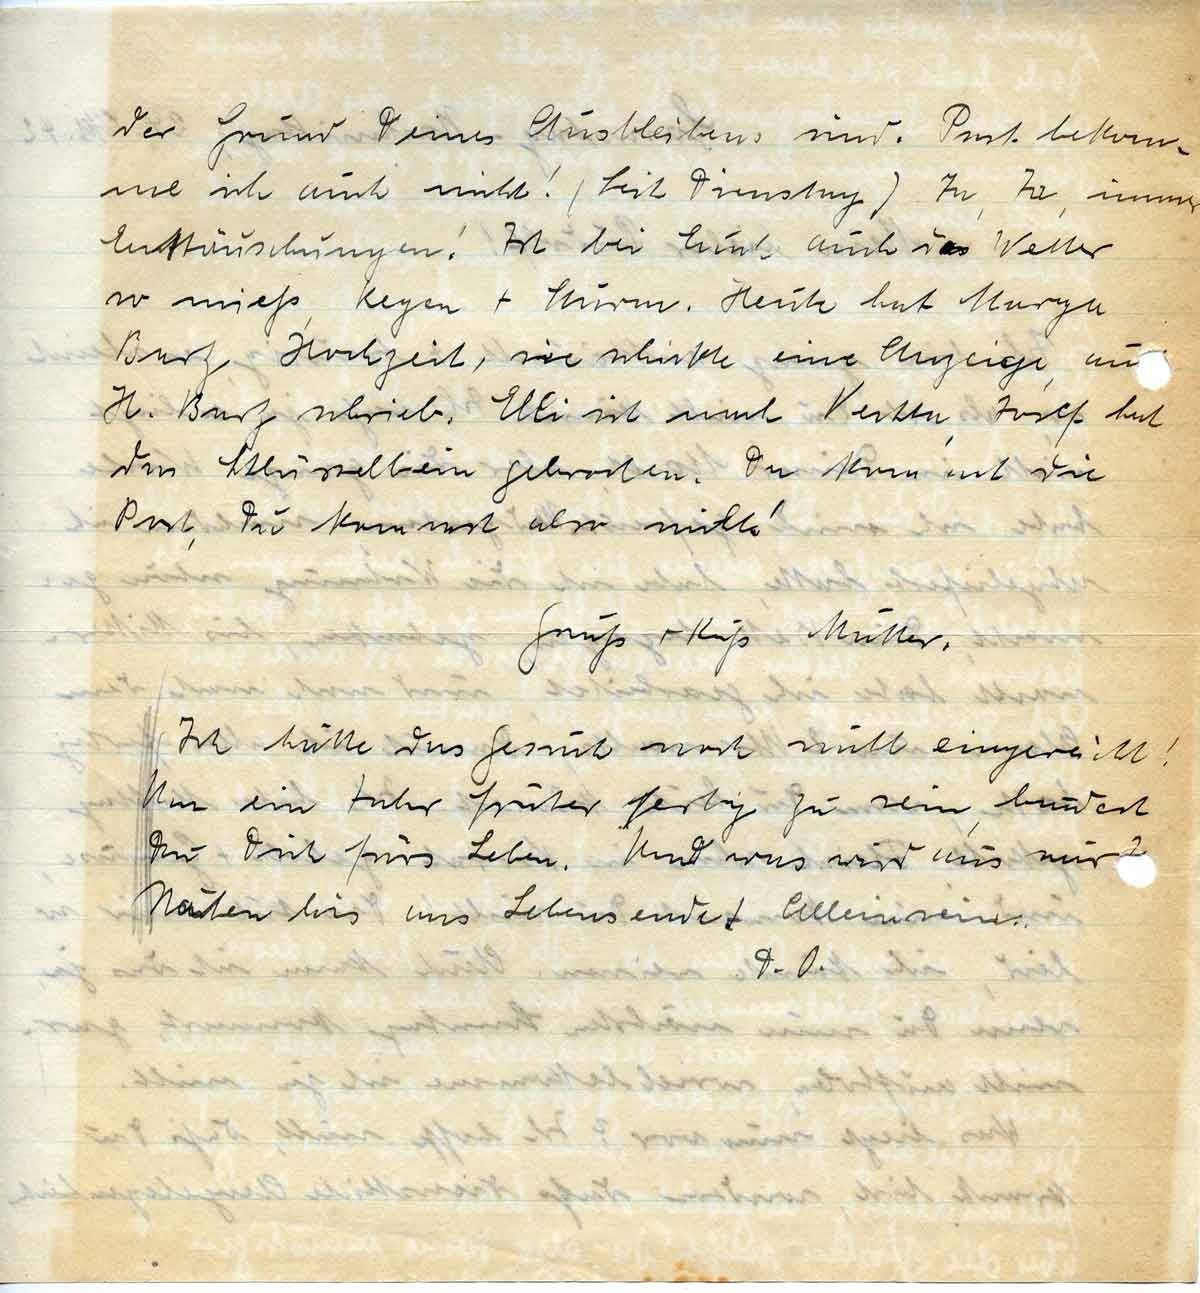 der Grund Deines Ausbleibens sind. Post bekom-
me ich auch nicht! (Seit Dienstag) Ja, Ja, immer
Enttäuschungen! Ist bei Euch auch das Wetter
so mieß, Regen + Sturm. Heute hat Marga
Bartz Hochzeit, sie schickte eine Anzeige, auch
H. Bartz schrieb. Elli ist nach Vechta, Josef hat
das Schlüsselbein gebrochen. Da kommt die
Post, Du kommst also nicht!
Gruß + Kuß Mutter.
Ich hätte das Gesuch noch nicht eingereicht!
Um ein Jahr früher fertig zu sein, bindest
Du Dich fürs Leben. Und was wird aus mir?
Nähen bis ans Lebensende + Alleinsein.
D. O.